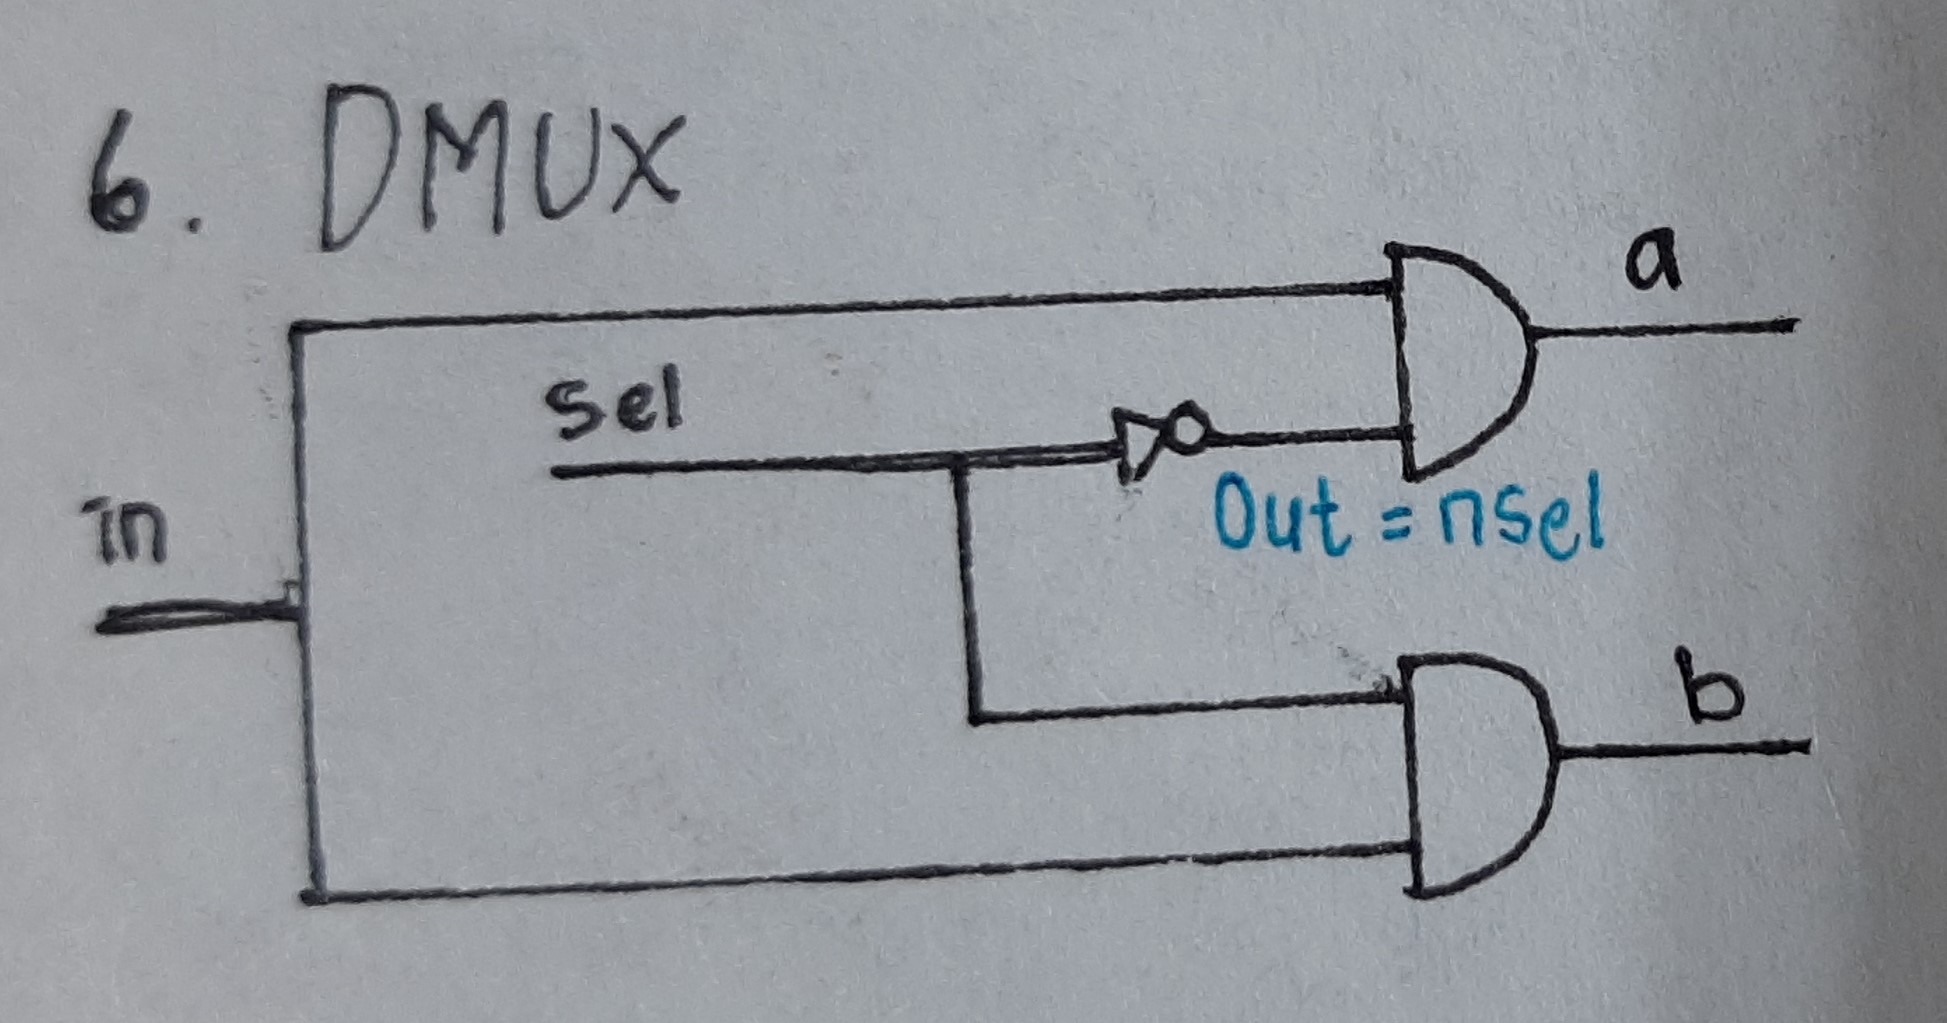 6. DMUX
a
sel
in
Out = nsel
b